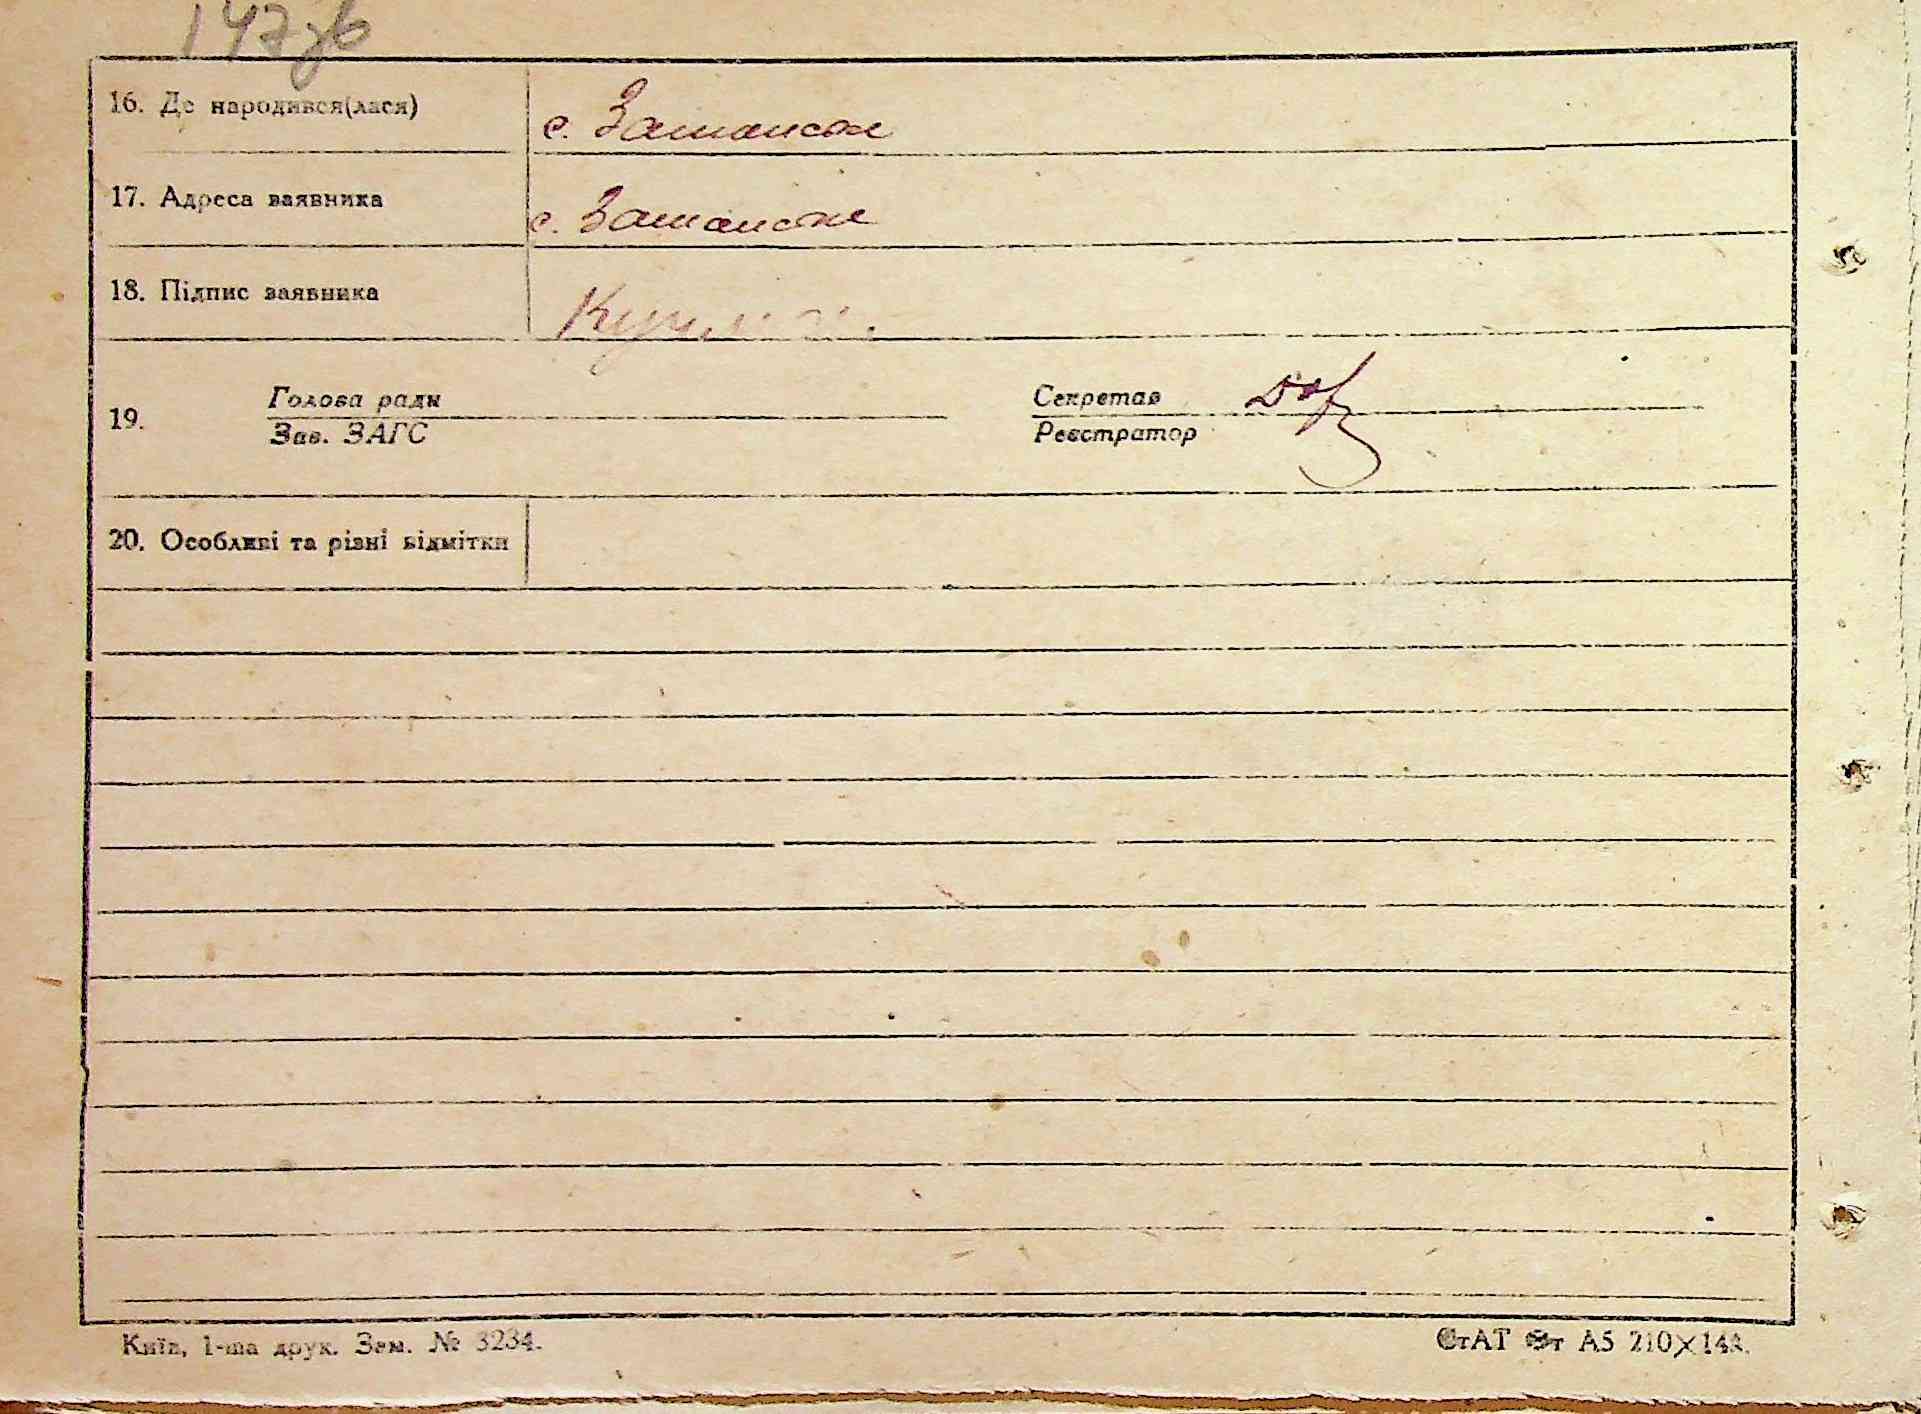 147зв
16. Де народився(лася)
с.
17. Адреса заявника
с.
18. Підпис заявника
19. Голова ради
Зав. ЗАГС
Секретар
Реєстратор
20. Особливі та різні відмітки
Київ, 1-ша друк. Зам. № 3234.
СтАТ Фт А5 210×148.